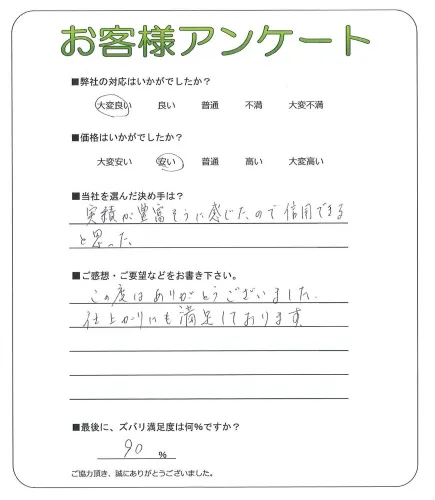 お客様アンケート
■弊社の対応はいかがでしたか？
大変良い 良い 普通 不満 大変不満
■価格はいかがでしたか？
大変安い 安い 普通 高い 大変高い
■当社を選んだ決め手は？
実績が豊富そうに感じたので信用できる
と思った。
■ご感想・ご要望などをお書き下さい。
この度はありがとうございました.
仕上がりにも満足しております.
■最後に、ズバリ満足度は何％ですか？
90 %
ご協力頂き、誠にありがとうございました。